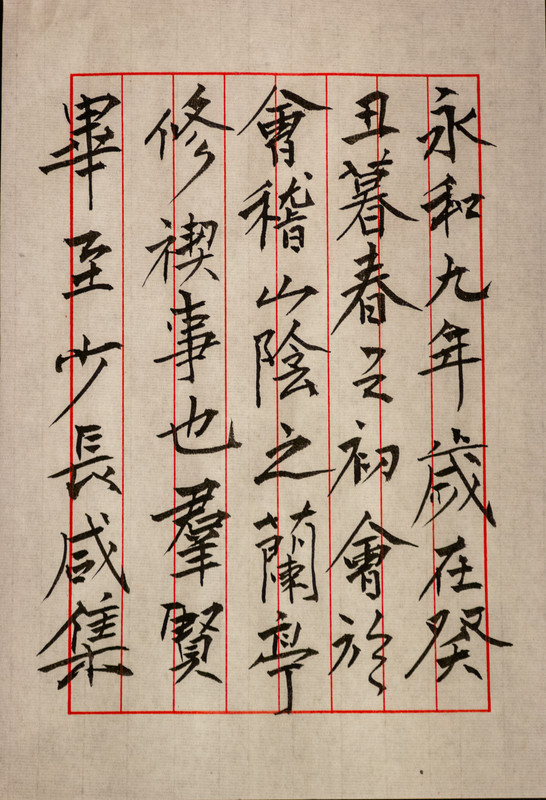 永和九年歲在癸
丑暮春之初會於
會稽山陰之蘭亭
修禊事也羣賢
畢至少長咸集